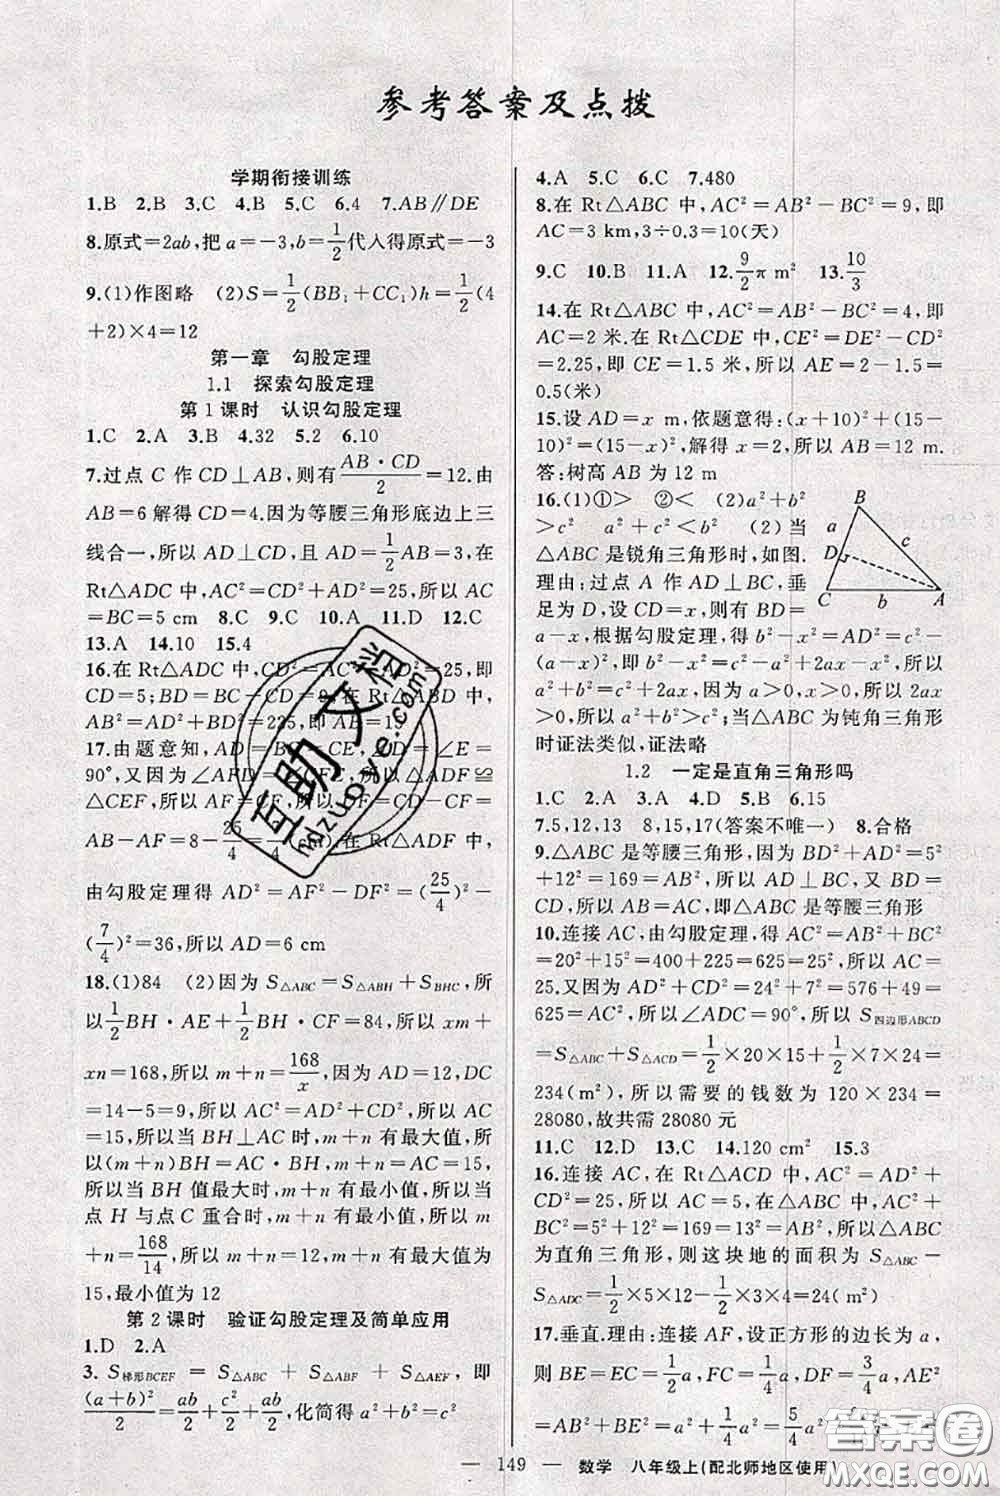 参考答案及点拨
学期衔接训练
1.B 2.B 3.C 4.B 5.C 6.4 7.AB∥DE
8.原式=2ab,把a=-3,b=1/2代入得原式=-3
9.(1)作图略 (2)S=1/2(BB₁+CC₁)h=1/2(4
+2)×4=12
第一章 勾股定理
1.1 探索勾股定理
第1课时 认识勾股定理
1.C 2.A 3.B 4.32 5.2 6.10
7.过点C作CD⊥AB,则有AB·CD/2=12.由
AB=6解得CD=4.因为等腰三角形底边上三
线合一,所以AD⊥CD,且AD=1/2AB=3,在
Rt△ADC中,AC²=CD²+AD²=25,所以AC
=BC=5 cm 8.C 9.C 10.A 11.D 12.C
13.A 14.10 15.4
16.在Rt△ADC中,CD²=AC²-AD²=25,即
CD=5;BD=BC-CD=9,在Rt△ABD中,
AB²=AD²+BD²=225,即AB=15
17.由题意知,AD=BC=CE,∠D=∠E=
90°,又因为∠AFD=∠ ,△ADF≌
△CEF,所以AF=CF,所以DF=
AB-AF=8-25/4=7/4(cm),在Rt△ADF中,
由勾股定理得AD²=AF²-DF²=(25/4)²-
(7/4)²=36,所以AD=6 cm
18.(1)84 (2)因为S△ABC=S△ABH+S△BHC,所
以1/2BH·AE+1/2BH·CF=84,所以xm+
xn=168,所以m+n=168/x,因为AD=12,DC
=14-5=9,所以AC²=AD²+CD²,所以AC
=15,所以当BH⊥AC时,m+n有最大值,所
以(m+n)BH=AC·BH,所以m+n=AC=15,
所以当BH值最大时,m+n有最小值,所以当
点H与点C重合时,m+n有最小值,所以m
+n=168/14,所以m+n=12,m+n的最大值为
15,最小值为12
第2课时 验证勾股定理及简单应用
1.D 2.A
3. S梯形BCEF = S△ABC + S△ABF + S△AEF, 即
(a+b)²/2=ab/2+c²/2+ab/2,化简得a²+b²=c²
4.A 5.C 6.C 7.480
8.在Rt△ABC中,AC²=AB²-BC²=9,即
AC=3 km,3÷0.3=10(天)
9.C 10.B 11.A 12.9/2π m² 13.10/3
14.在Rt△ABC中,AC²=AB²-BC²=4,即
AC=2米.在Rt△CDE中,CE²=DE²-CD²
=2.25,即CE=1.5米,所以AE=2-1.5=
0.5(米)
15.设AD=x m,依题意得:(x+10)²+(15-
10)²=(15-x)²,解得x=2,所以AB=12 m.
答:树高AB为12 m
16.(1)①> ②< (2)a²+b²
>c² a²+c²<b² (2)当
△ABC是锐角三角形时,如图.
理由:过点A作AD⊥BC,垂
足为D,设CD=x,则有BD=
a-x,根据勾股定理,得b²-x²=AD²=c²-
(a-x)²,即b²-x²=c²-a²+2ax-x²,所以
a²+b²=c²+2ax,因为a>0,x>0,所以2ax
>0,所以a²+b²>c²;当△ABC为钝角三角形
时证法类似,证法略
B
a
c
D
C
b
A
1.2 一定是直角三角形吗
1.C 2.A 3.A 4.D 5.B 6.15
7.5,12,13 8,15,17(答案不唯一) 8.合格
9.△ABC是等腰三角形,因为BD²+AD²=5²
+12²=169=AB²,所以AD⊥BC,又BD=
CD,所以AB=AC,即△ABC是等腰三角形
10.连接AC,由勾股定理,得AC²=AB²+BC²
=20²+15²=400+225=625=25²,所以AC=
25,又因为CD²+AD²=24²+7²=576+49=
625=AC²,所以∠ADC=90°,所以S四边形ABCD
=S△ABC+S△ACD=1/2×20×15+1/2×7×24=
234(m²),所以需要的钱数为120×234=
28080,故共需28080元
11.C 12.D 13.C 14.120 cm² 15.3
16.连接AC,在Rt△ACD中,AC²=AD²+
CD²=25,所以AC=5,在△ABC中,AC²+
BC²=5²+12²=169=13²=AB²,所以△ABC
为直角三角形,则这块地的面积为S△ABC-
S△ADC=1/2×5×12-1/2×3×4=24(m²)
17.垂直.理由:连接AF,设正方形的边长为a,
则BE=EC=1/2a,FC=1/4a,DF=3/4a,AE²
=AB²+BE²=a²+1/4a²=5/4a²
— 149 — 数学 八年级上(配北师地区使用)
互助文档
hdzuoye.com
答案圈
MXQE.COM